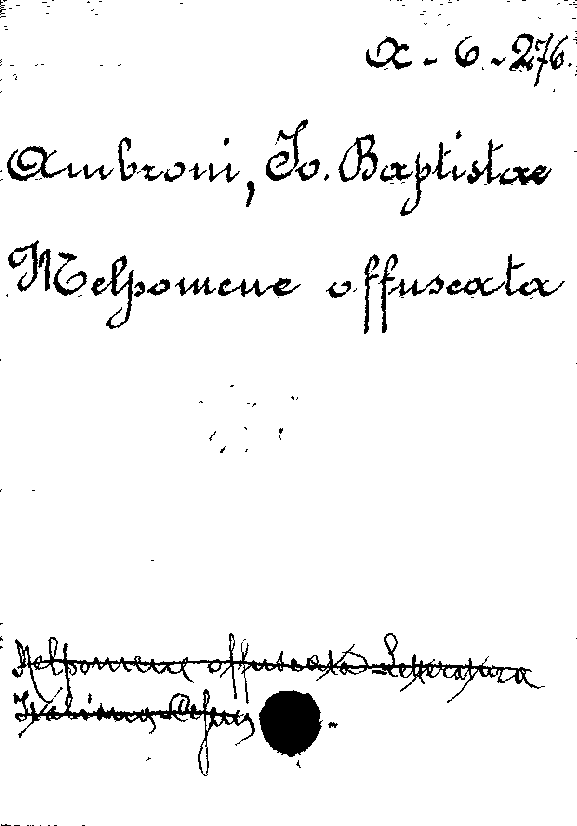 A - 6 - 276.
Ambroni, Jo. Baptistae
Melpomene offuscata
Melpomene offuscata Letteratura
Italiana